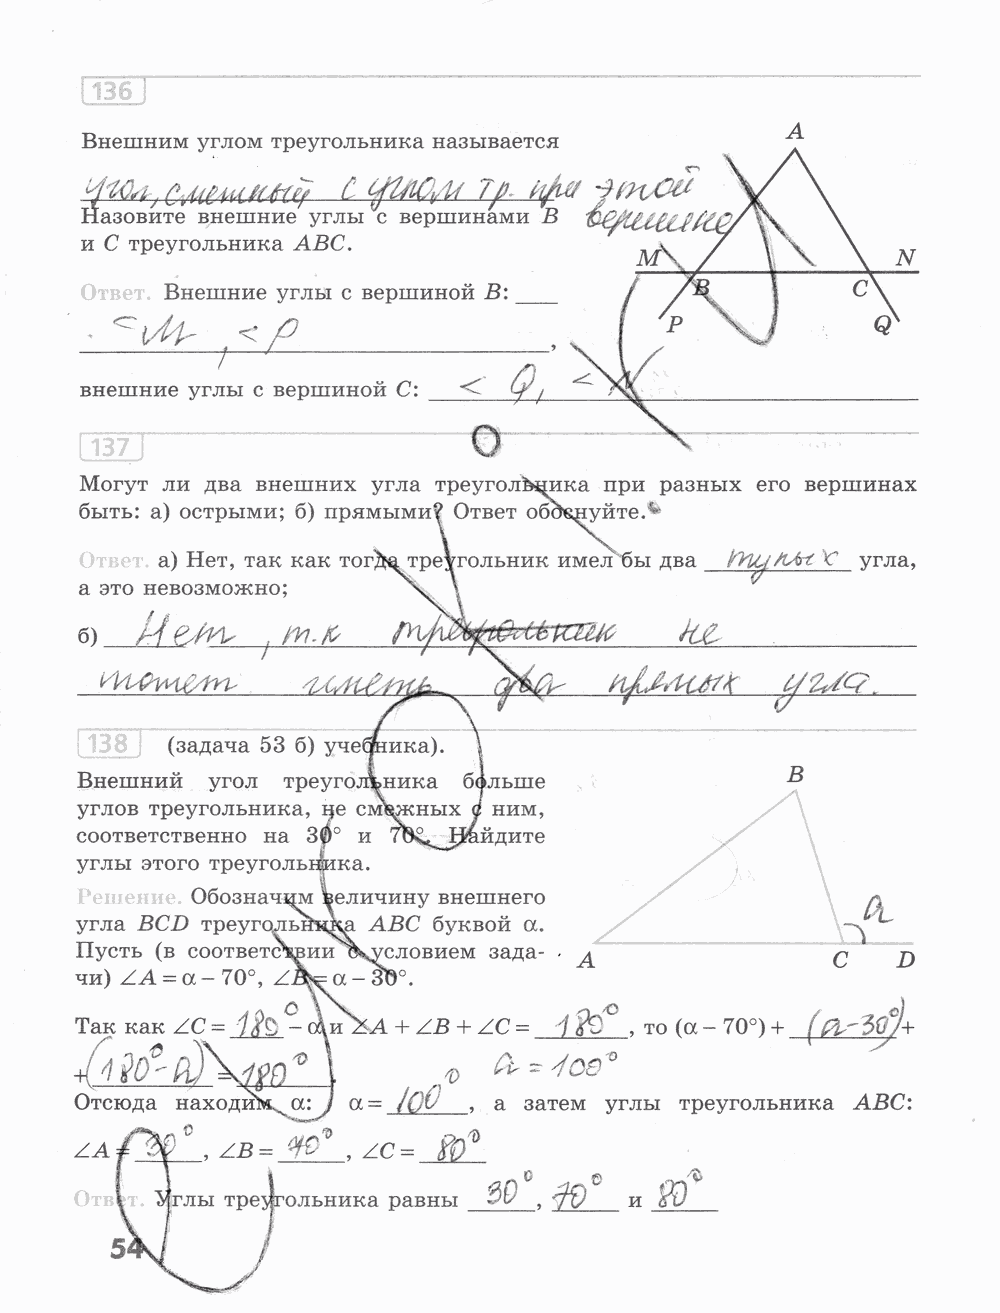 136
Внешним углом треугольника называется
угол, смежный с углом тр. при этой
вершине
Назовите внешние углы с вершинами B
и C треугольника ABC.
A
M
N
B
C
P
Q
Ответ. Внешние углы с вершиной B:
<M, <P,
внешние углы с вершиной C: < Q, < N
137
Могут ли два внешних угла треугольника при разных его вершинах
быть: а) острыми; б) прямыми? Ответ обоснуйте.
Ответ. а) Нет, так как тогда треугольник имел бы два тупых угла,
а это невозможно;
б) Нет, т.к треугольник не
может иметь два прямых угла.
138 (задача 53 б) учебника).
Внешний угол треугольника больше
углов треугольника, не смежных с ним,
соответственно на 30° и 70°. Найдите
углы этого треугольника.
Решение. Обозначим величину внешнего
угла BCD треугольника ABC буквой α.
Пусть (в соответствии с условием зада-
чи) ∠A = α – 70°, ∠B = α – 30°.
B
a
A
C
D
Так как ∠C = 180° – α и ∠A + ∠B + ∠C = 180°, то (α – 70°) + (a-30°) +
+ (180°-a) = 180° a = 100°
Отсюда находим α: α = 100°, а затем углы треугольника ABC:
∠A = 30°, ∠B = 70°, ∠C = 80°
Ответ. Углы треугольника равны 30°, 70° и 80°
54